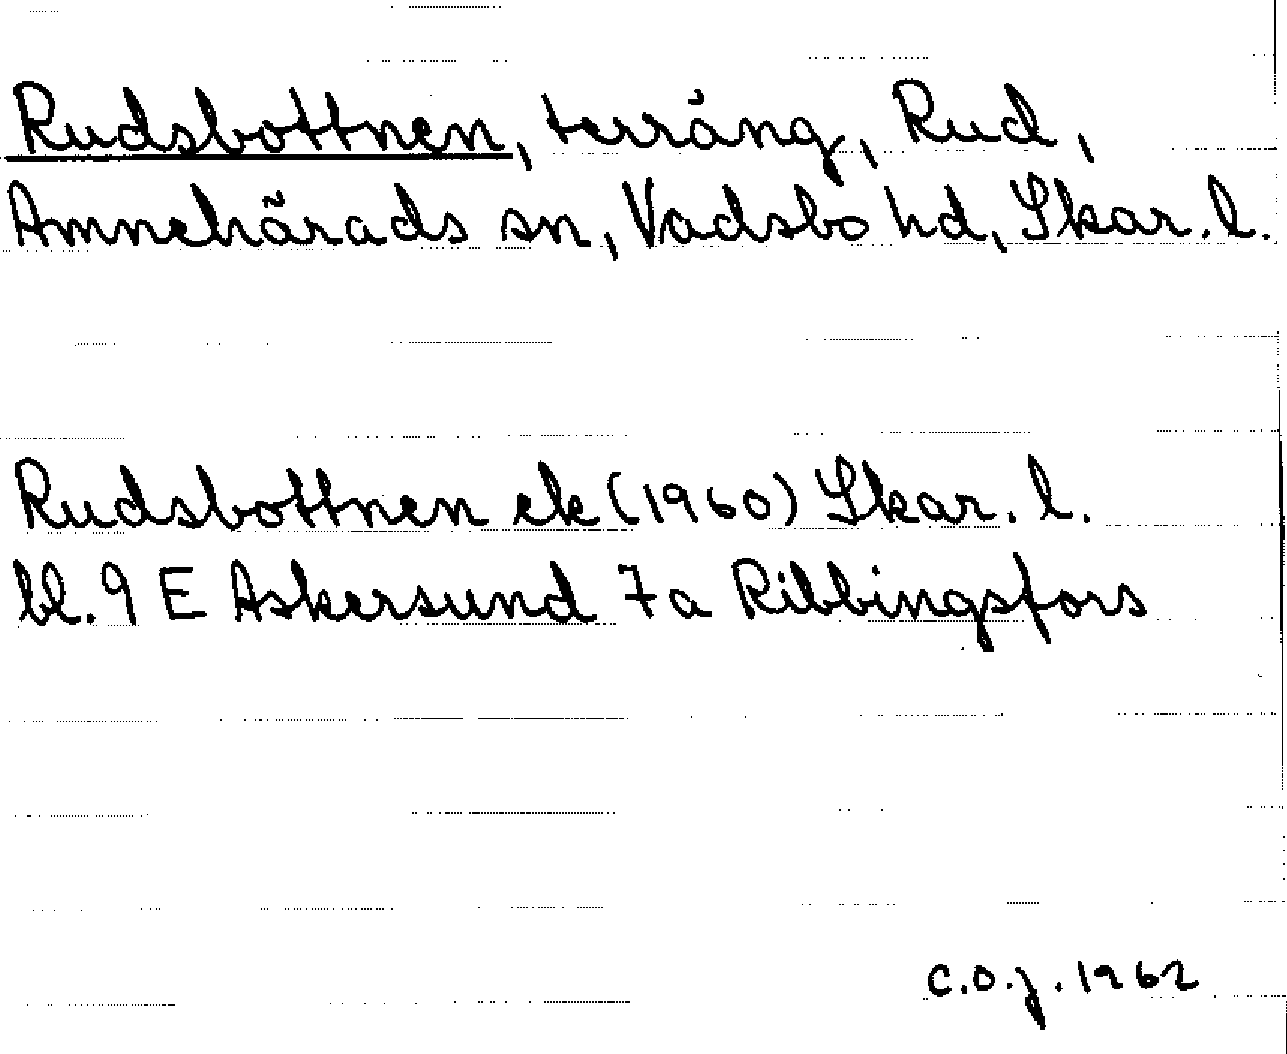 Rudsbottnen, terräng, Rud,
Amnehärads sn, Vadsbo hd, Skar. l.
Rudsbottnen ek (1960) Skar. l.
bl. 9 E Askersund 7a Ribbingsfors
C.O.J. 1962